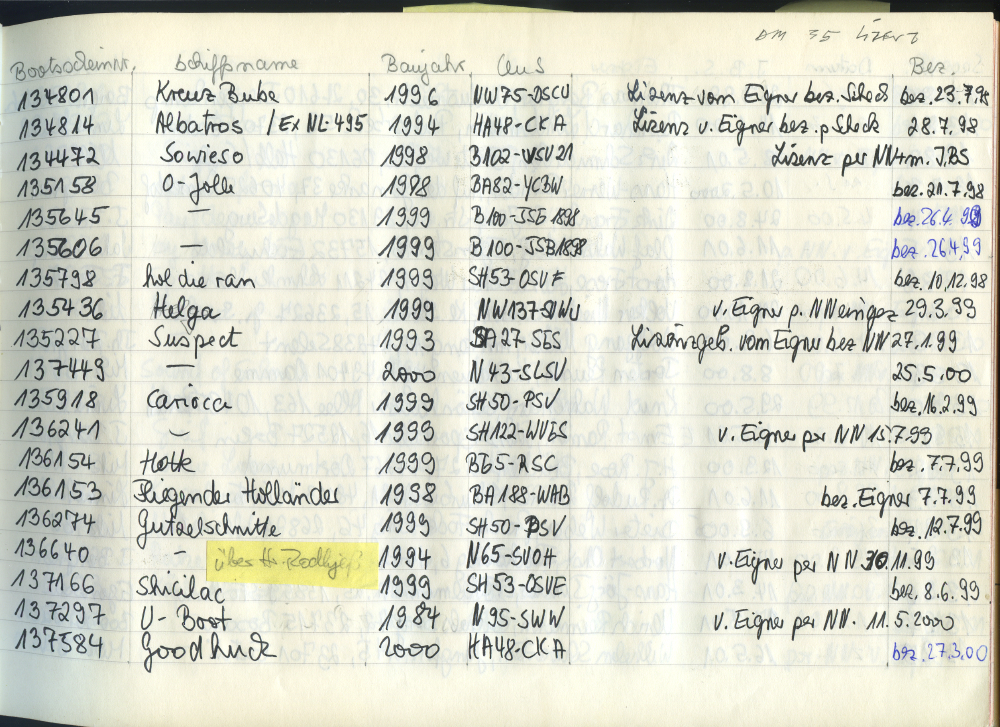 DM 35 Lizenz
Bootsscheinnr. Schiffsname Baujahr Aus Bez.
134801 Kreuz Bube 1996 NW75-DSCU Lizenz vom Eigner bez. Schock bez. 23.7.98
134814 Albatros / Ex NL 495 1994 HA48-CKA Lizenz v. Eigner bez. p Schock 28.7.98
134472 Sowieso 1998 B102-VSV21 Lizenz per NN+m. JBS
135158 O-Jolle 1998 BA82-YCBW bez. 21.7.98
135645 — 1999 B100-JSB 1898 bez. 26.4.99
135606 — 1999 B100-JSB1898 bez. 26.4.99
135798 hol die ran 1999 SH53-OSVE bez. 10.12.98
135436 Helga 1999 NW137-SWU v. Eigner p. NN eingez 29.3.99
135227 Suspect 1993 BA27-SES Lizenzgeb. vom Eigner bez NN 27.1.99
137449 — 2000 N43-SLSV 25.5.00
135918 Carioca 1999 SH50-PSV bez. 16.2.99
136241 — 1999 SH122-WVES v. Eigner per NN 15.7.99
136154 Hotk 1999 B65-RSC bez. 7.7.99
136153 Fliegender Holländer 1998 BA188-WAB bez. Eigner 7.7.99
136274 Gutzelschnitte 1999 SH50-PSV bez. 12.7.99
136640 — über Hr. 1994 N65-SVOH v. Eigner per NN 30.11.99
137166 Shicilac 1999 SH53-OSVE bez. 8.6.99
137297 U-Boot 1984 N95-SWW v. Eigner per NN. 11.5.2000
137584 Good huck 2000 HA48-CKA bez. 27.3.00